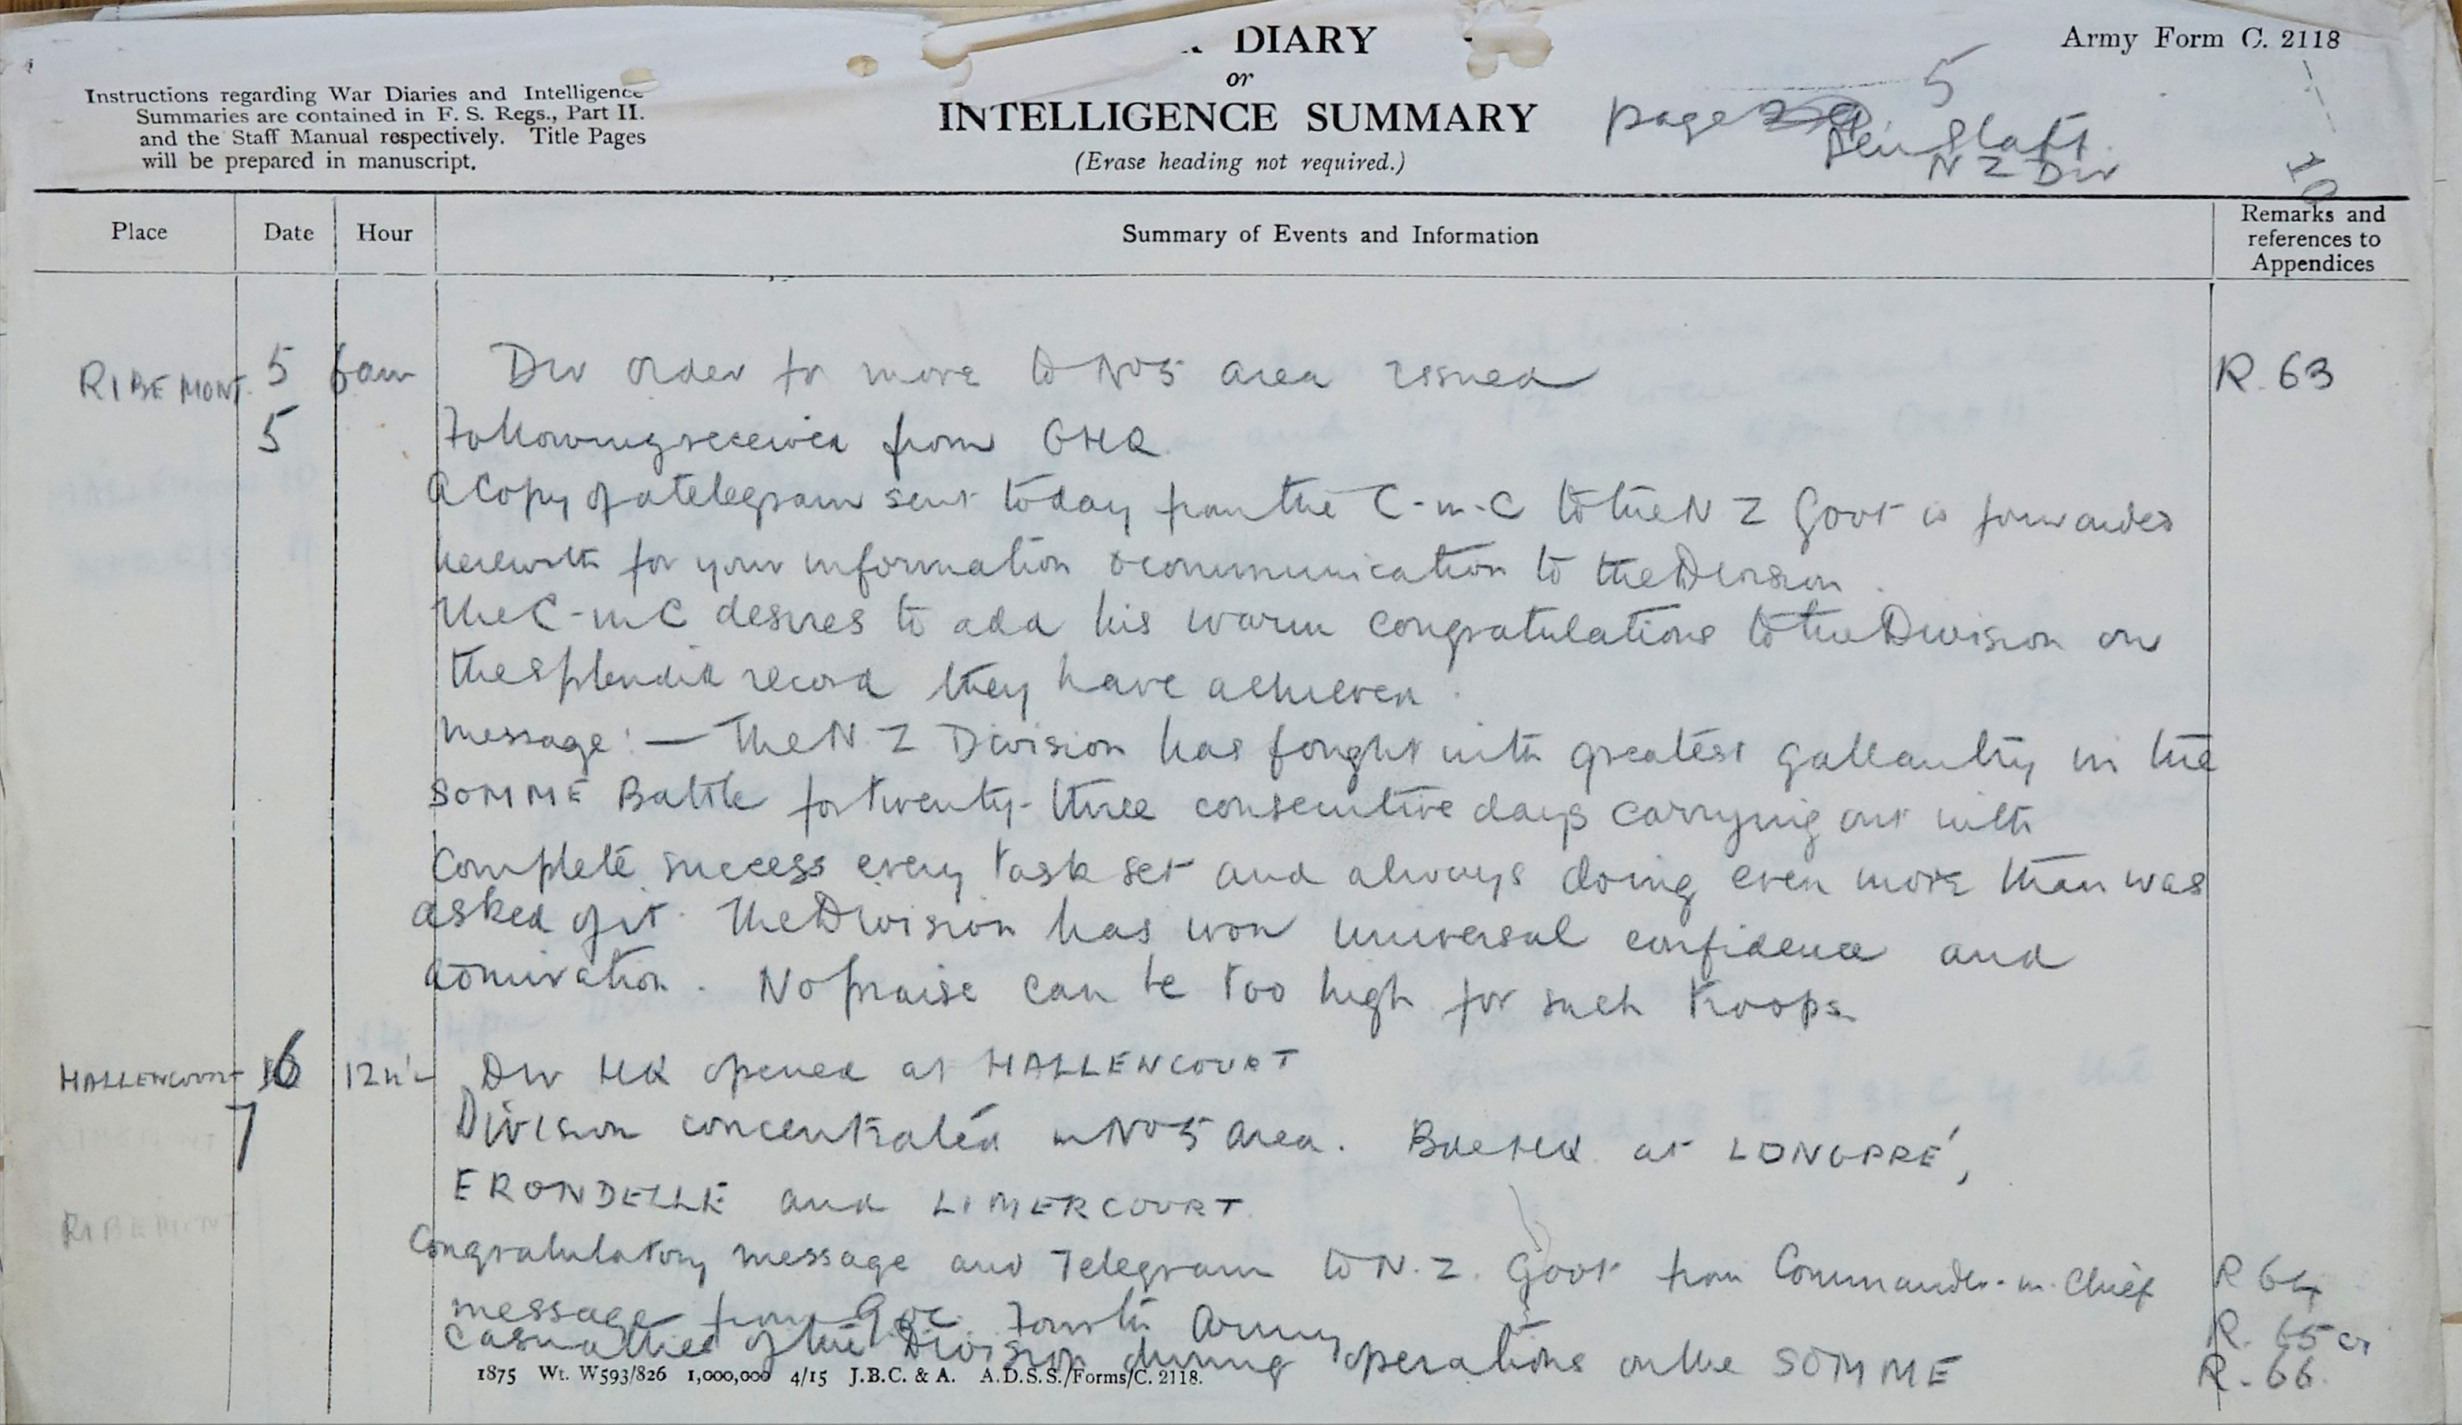 DIARY
or
INTELLIGENCE SUMMARY
(Erase heading not required.)
Army Form C. 2118
Instructions regarding War Diaries and Intelligence
Summaries are contained in F. S. Regs., Part II.
and the Staff Manual respectively. Title Pages
will be prepared in manuscript.
page 5
Gen Staff.
N Z Div
10
Place Date Hour Summary of Events and Information Remarks and
references to
Appendices
RIBEMONT. 5 6am Div order for move to No 5 area issued R. 63
5 Following received from GHQ.
A Copy of a telegram sent today from the C-in-C to the N Z Govt is forwarded
herewith for your information & communication to the Division.
The C-in C desires to add his warm congratulations to the Division on
the splendid record they have achieved.
Message:— The N Z Division has fought with greatest gallantry in the
SOMME Battle for twenty-three consecutive days carrying out with
complete success every task set and always doing even more than was
asked of it. The Division has won universal confidence and
admiration. No praise can be too high for such troops.
HALLENCOURT 6 12 n'n Div HQ opened at HALLENCOURT
7 Division concentrated in No 5 area. Bde HQ at LONGPRÉ,
ERONDELLE and LIMERCOURT.
RIBEMONT
Congratulatory message and Telegram to N.Z. Govt from Commander-in-Chief R 64
message from GOC. Fourth Army R. 65
Casualties of the Division during operations on the SOMME R. 66.
1875 Wt. W593/826 1,000,000 4/15 J.B.C. & A. A.D.S.S./Forms/C. 2118.